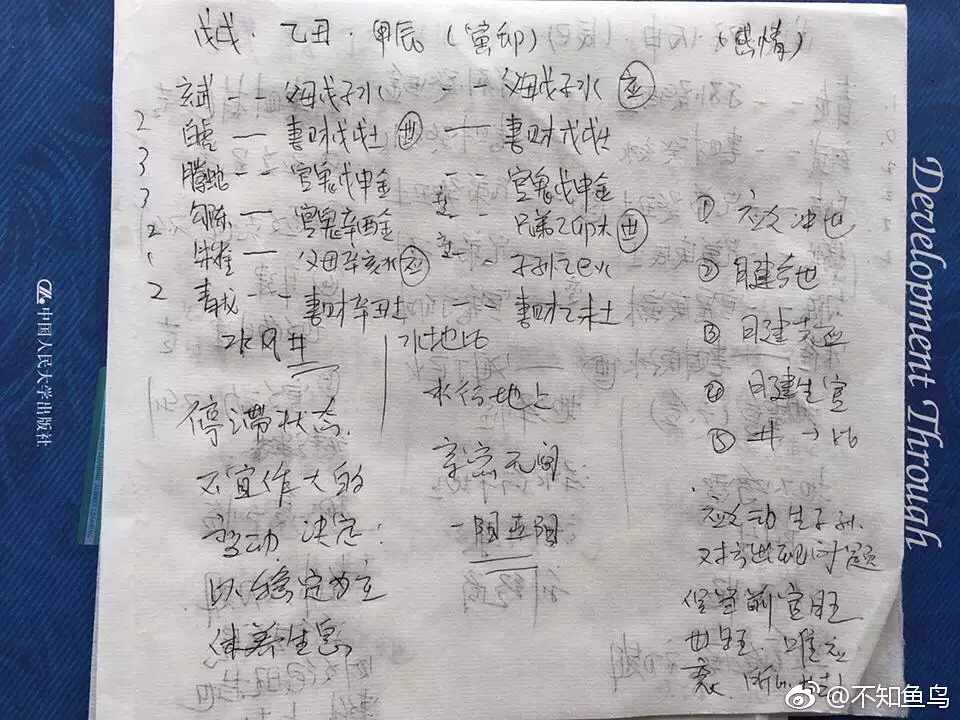 戊戌·乙丑·甲辰（寅卯）（感情）
玄武 -- 父母戊子水 -- 父母戊子水 应
2 白虎 — 妻财戊戌土 世 — 妻财戊戌土
3 腾蛇 -- 官鬼戊申金 -- 官鬼戊申金
3 勾陈 — 官鬼辛酉金 -- 兄弟乙卯木 世
2 朱雀 — 父母辛亥水 应 -- 子孙乙巳火
2 青龙 -- 妻财辛丑土 妻财乙未土
水风井
水地比
停滞状态
不宜作大的
变动 决定：
以稳定为主
休养生息
水行地上
亲密无间
一阳五阴
① 应爻冲世
② 日建合世
③ 日建克应
④ 日建生官
⑤ 井→比
应爻动生子孙
对方出现问题
但空前官旺
世旺
中国人民大学出版社
Development Through
@不知鱼鸟